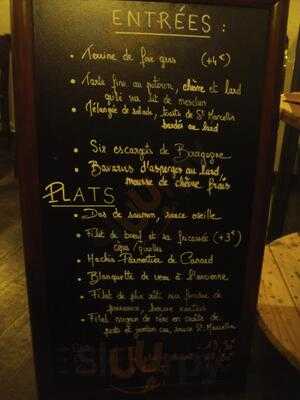 ENTRÉES :
• Terrine de foie gras (+4€)
• Tarte fine au potiron, chèvre et lard
grillé sur lit de mesclun
• Mélange de salade, toasts de St Marcellin
bardés au lard
• Six escargots de Bourgogne
• Bavarois d'asperges au lard,
mousse de chèvre frais
PLATS
• Dos de saumon, sauce oseille
• Filet de boeuf et sa fricassée (+3€)
cèpes/girolles
• Hachis Parmentier de Canard
• Blanquette de veau à l'ancienne
• Filet de plus rôti sur fondue de
• Filet mignon de porc en croûte de
sauce St Marcellin